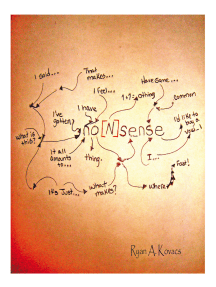 I said...
That makes...
Have some...
I feel...
1+?=0thing
common
I've gotten?
I have
I'd like to buy a vowel...!
what is this?
no[N]sense
It all amounts to...
thing.
I...
Fast!
It's Just...
What makes?
where?
Ryan A. Kovacs